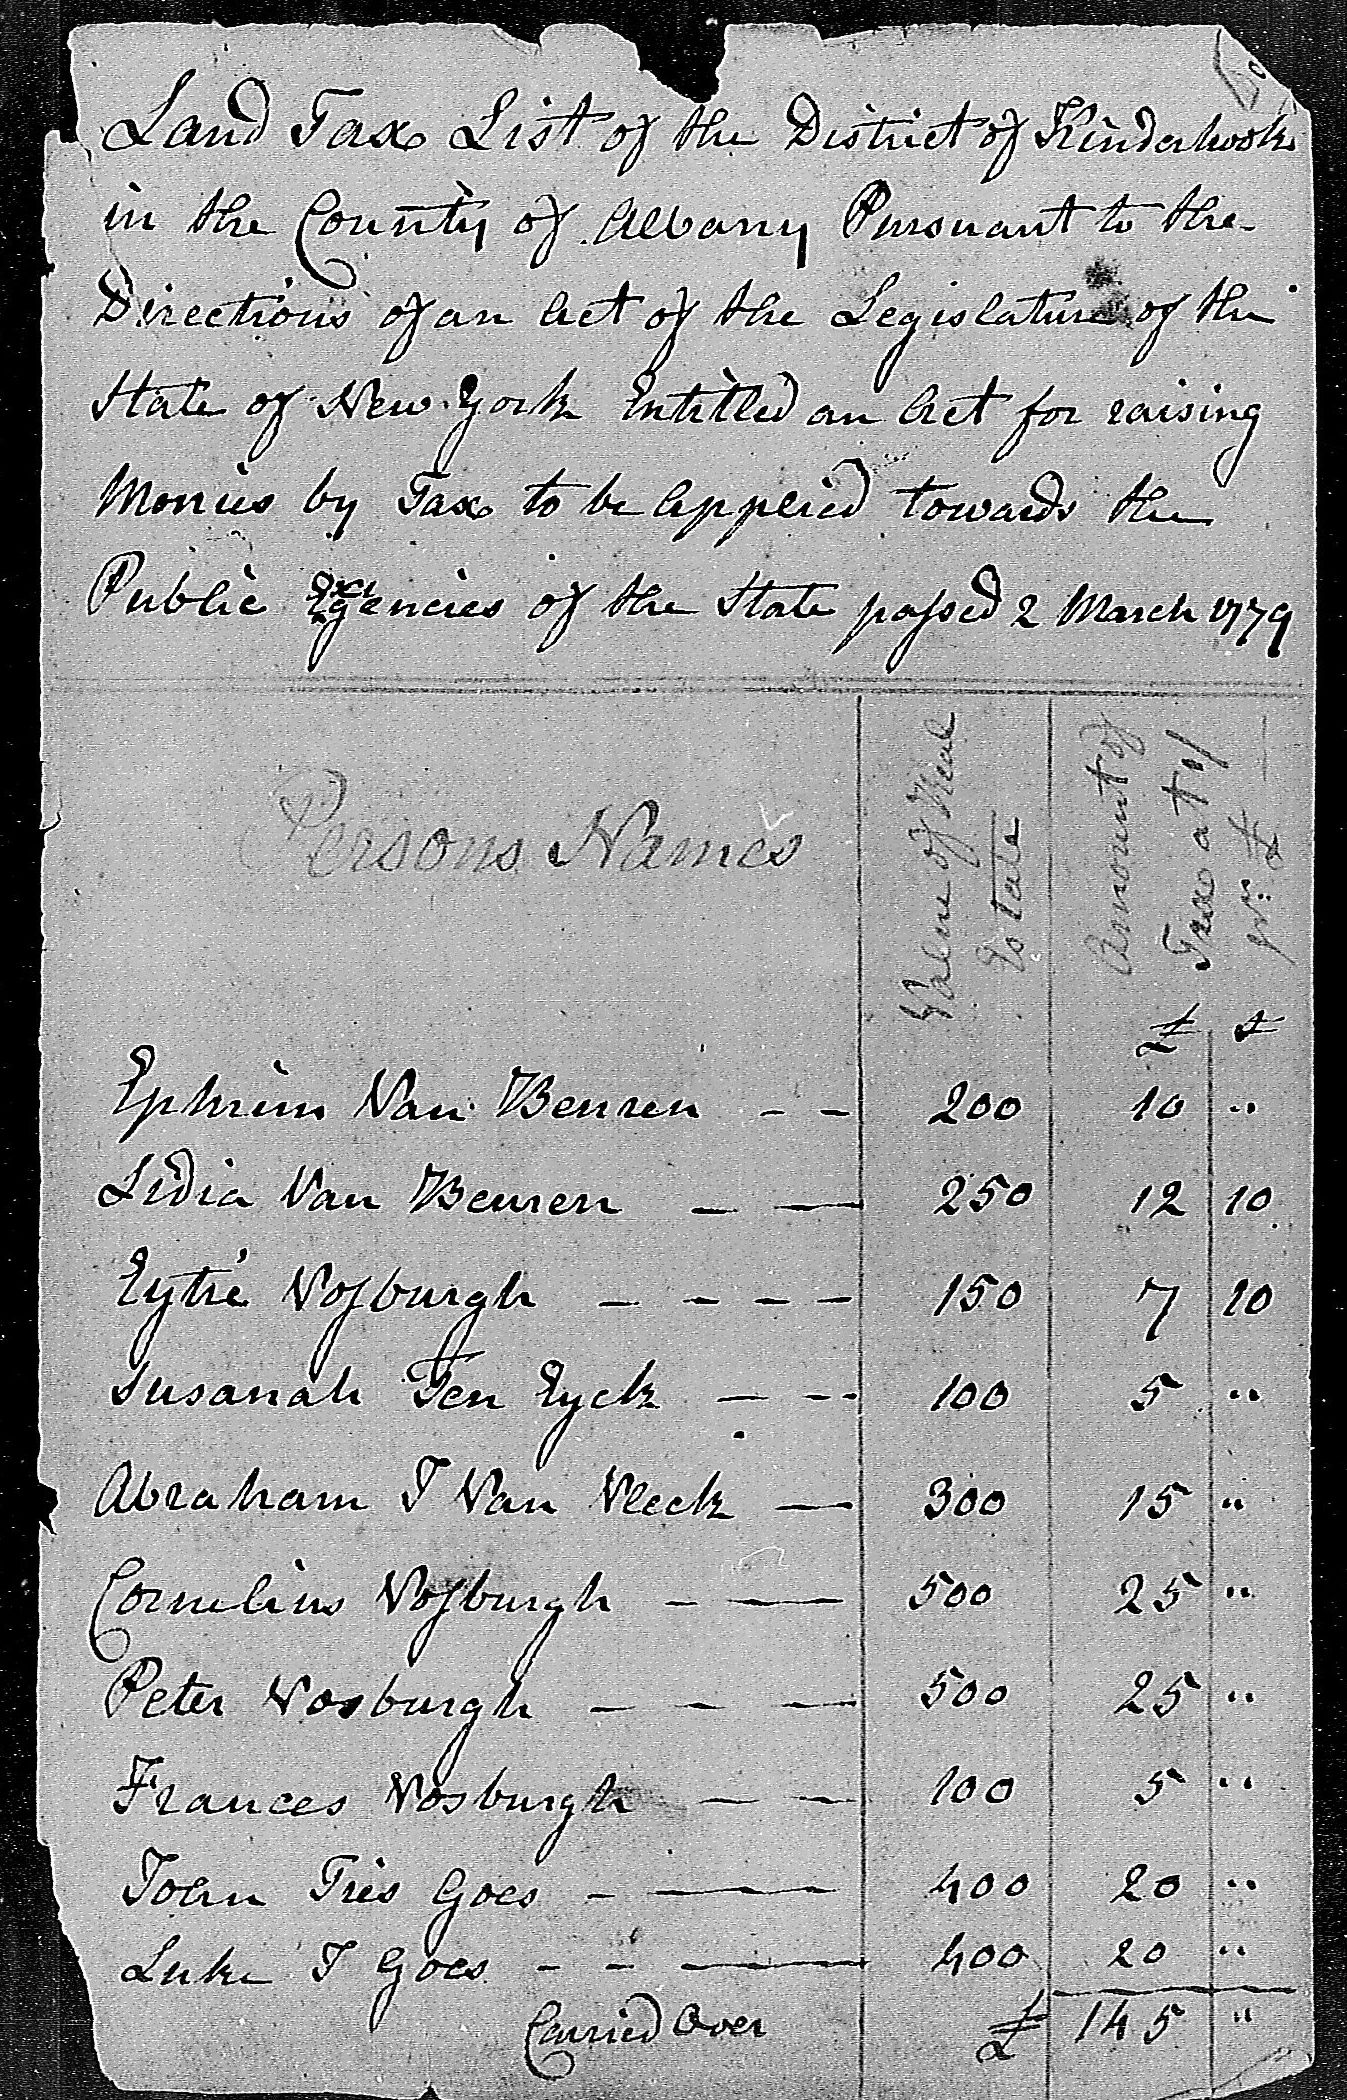 Land Tax List of the District of Kinderhook
in the County of Albany Pursuant to the
Directions of an Act of the Legislature of the
State of New York Entitled an Act for raising
Monies by Tax to be Applied towards the
Public Exigencies of the State passed 2 March 1779
Persons Names
Value of Real
Estate
Amount of
Tax at 1/
pr. £
£ s
Ephrim Van Beuren - - 200 10 "
Lidia Van Beuren - - 250 12 10
Eytie Vosburgh - - - - 150 7 10
Susanah Ten Eyck - - - 100 5 "
Abraham T Van Vleck - 300 15 "
Cornelius Vosburgh - - 500 25 "
Peter Vosburgh - - - 500 25 "
Frances Vosburgh - - 100 5 "
John Ties Goes - - 400 20 "
Luke T Goes - - - 400 20 "
Carried Over £ 145 "